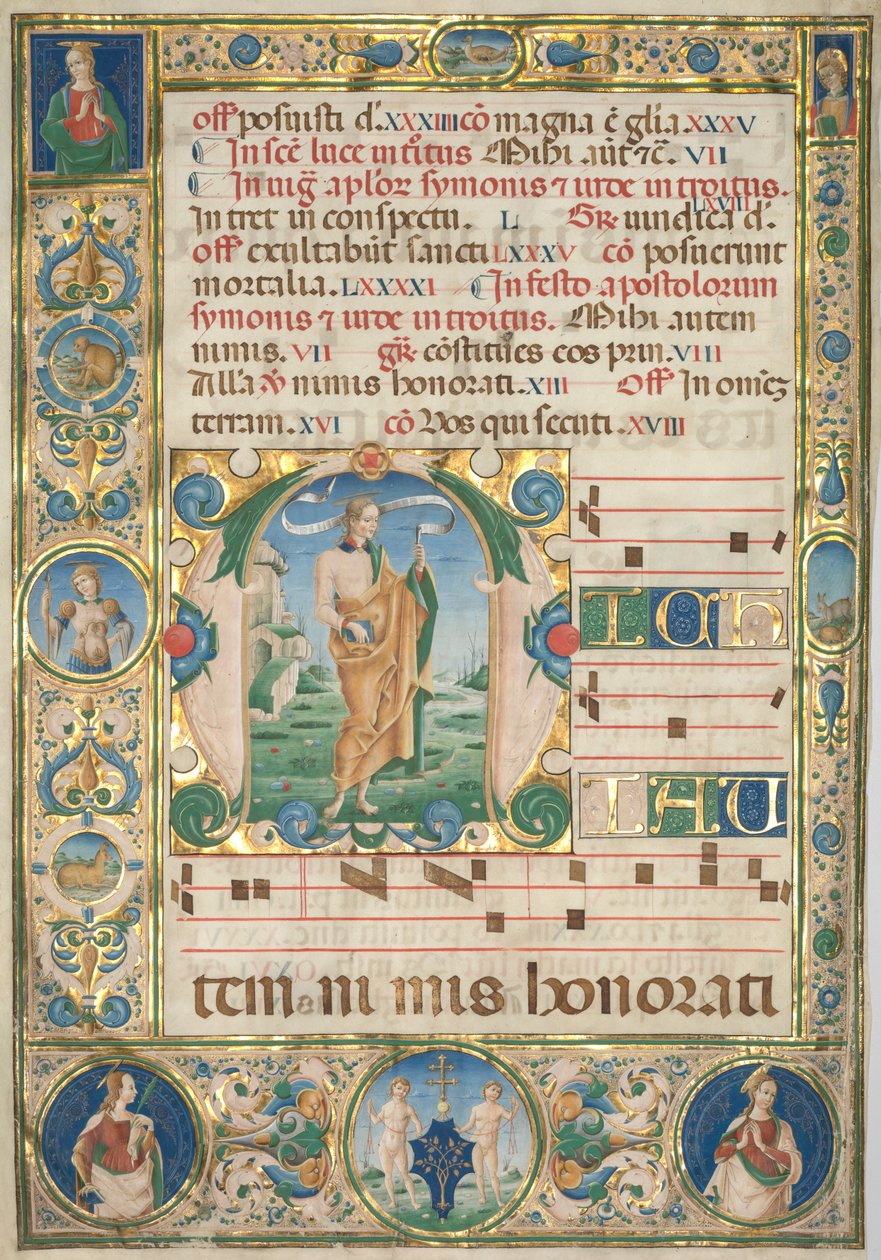 off̄ posuisti d̄. XXXIIII cō magna ē gl̄ia. XXXV
In scē luce introitus Mihi aūt ⁊c̄. VII
In uig̃ apl̄oꝝ symonis ⁊ iude introitus.
Intret in conspectu. L Gr̄ uindica d̄. LXVIII
off̄ exultabūt sancti LXXXV cō posuerunt
mortalia. LXXXXI In festo apostolorum
symonis ⁊ iude introitus. Mihi autem
nimis. VII gr̄ cōstitues eos prin. VIII
Alla ℣ nimis honorati. XIII Off̄ In omēz
terram. XVI cō Vos qui secuti. XVIII
M ICH
IAU
tem ni mis honorati